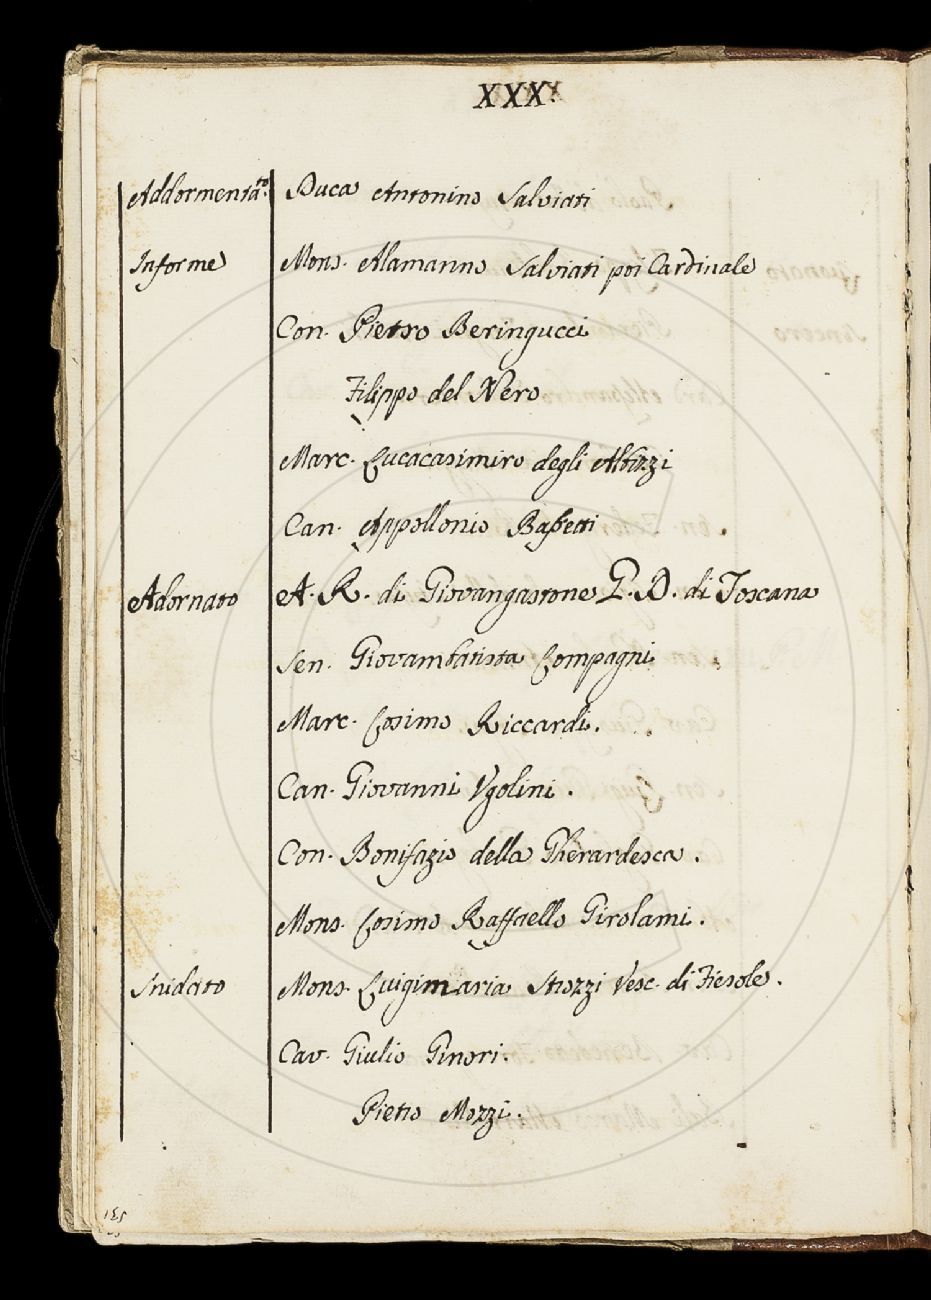 XXX.
Addormenta.to Duca Antonino Salviati
Informe Mons. Alamanno Salviati poi Cardinale
Con. Pietro Beringucci
Filippo del Nero
Marc. Lucacasimiro degli Albizzi
Can. Appollonio Bassetti
Adornato A. R. di Giovangastone G. D. di Toscana
Sen. Giovambatista Compagni
Marc. Cosimo Riccardi.
Can. Giovanni Ugolini.
Con. Bonifazio della Gherardesca.
Mons. Cosimo Raffaello Girolami.
Snidato Mons. Luigimaria Strozzi Vesc. di Fiesole.
Cav. Giulio Ginori.
Pietro Mozzi.